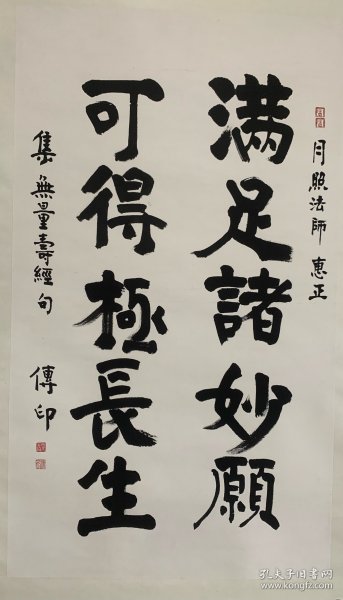 月照法師 惠正
满足諸妙願
可得極長生
集無量壽經句 傳印
孔夫子旧书网